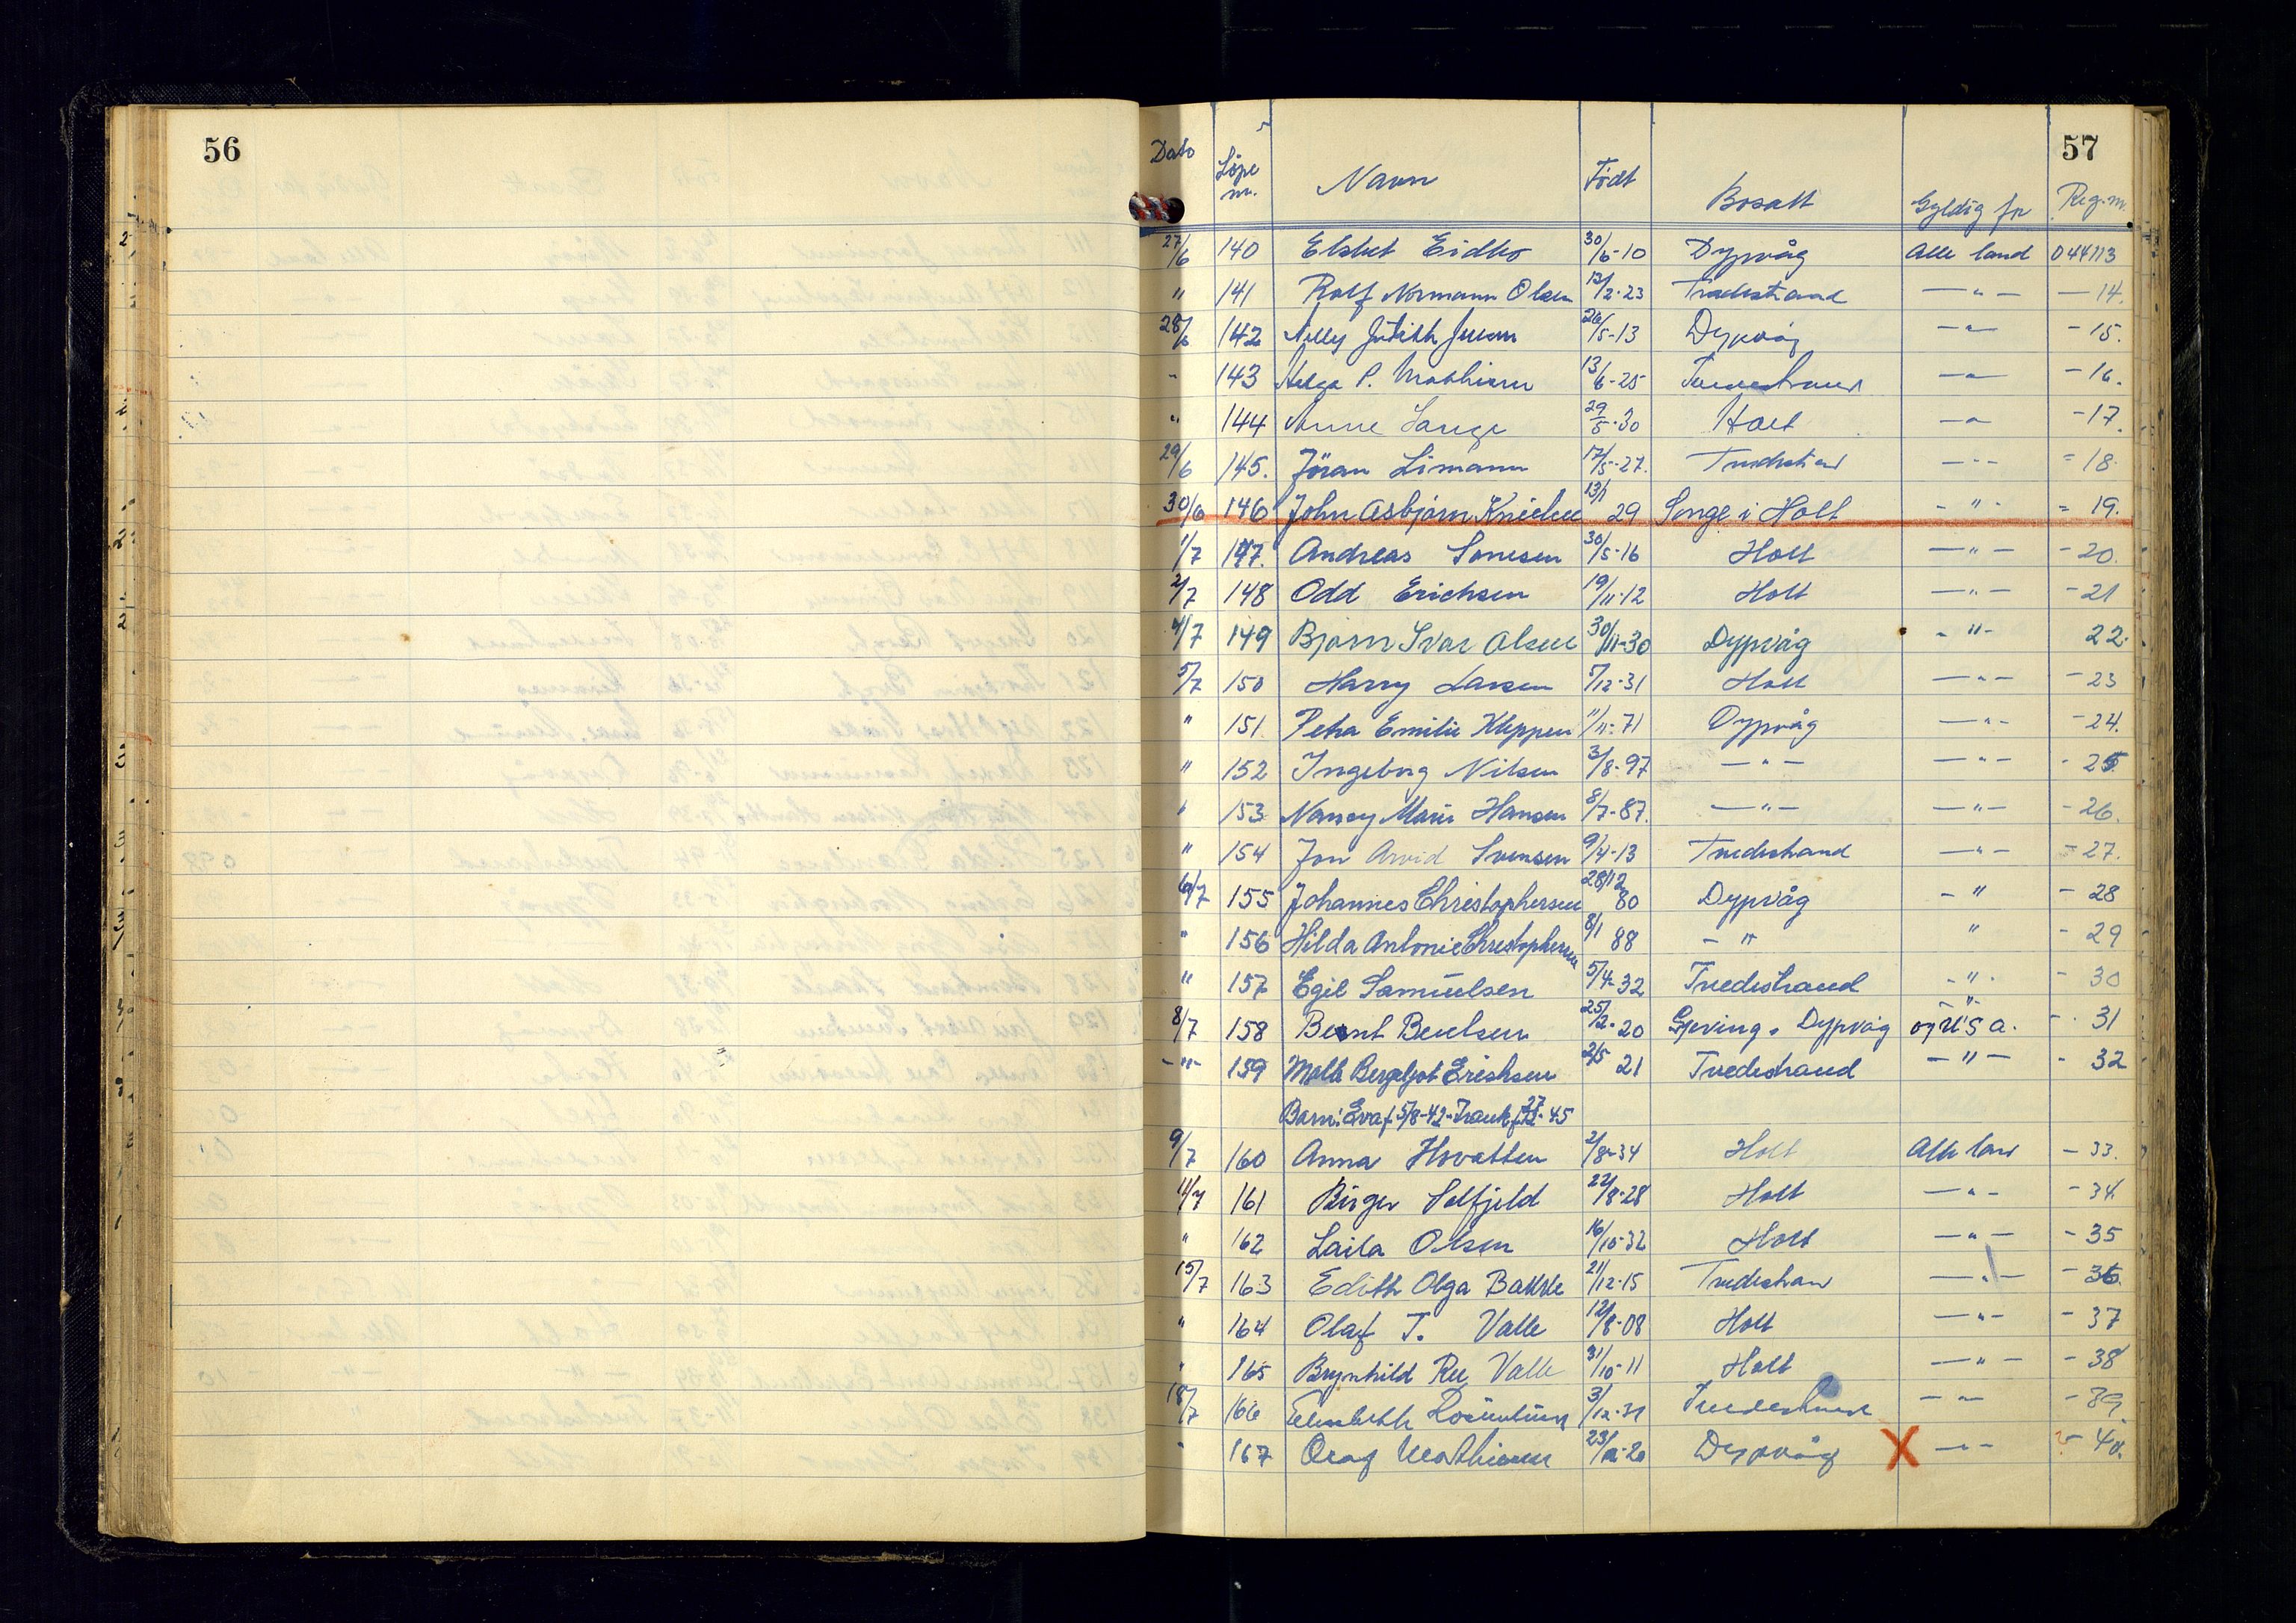 56
57
Dato Løpe nr. Navn Født Bosatt Gyldig for Reg.nr.
27/6 140 Elsbet Eidbo 30/6-10 Dypvåg Alle land 044113
" 141 Rolf Normann Olsen 13/2-23 Tvedestrand — " — — 14.
28/6 142 Nelly Judith Jensen 26/5-13 Dypvåg — " — - 15.
" 143 Helga P. Mathisen 13/6-25 Tvedestrand — " — - 16.
" 144 Anne Lange 29/5-30 Holt — " — - 17.
29/6 145. Jöran Limann 17/5-27. Tvedestrand — " — - 18.
30/6 146 John Asbjørn 13/1 29 Songe i Holt - " - - 19.
1/7 147. Andreas 30/5-16 Holt — " — - 20.
2/7 148 Odd Erichsen 19/11-12 Holt — " — - 21
4/7 149 Bjørn Ivar Olsen 30/11-30 Dypvåg - " - 22.
5/7 150 Harry Larsen 5/12-31 Holt — " — - 23
" 151. Petra Emilie Kleppen 11/11-71 Dypvåg — " — - 24.
" 152 Ingeborg Nilsen 3/8-97 — " — — " — - 25.
" 153 Nancy Marie Hansen 8/7-87. — " — — " — - 26.
" 154 Jon Arvid Svensen 9/4-13 Tvedestrand — " — - 27.
6/7 155 Johannes Christophersen 28/12 80 Dypvåg - " - 28
" 156 Hilda Antonie Christophersen 8/1 88 - " " - 29
" 157 Egil Samuelsen 5/4-32 Tvedestrand - " - - 30
8/7 158 Bernt Bentsen 25/2-20 Gjeving, Dypvåg - " - og U S A. - 31
- " - 159 Molle Bergljot Erichsen 2/5 21 Tvedestrand — " — - 32
Barn: Eva f. 5/8-42 - Frank f. 27/12-45
9/7 160 Anna Hovatten 2/8-34 Holt Alle land - 33.
11/7 161 Birger Solfjeld 22/8-28 Holt — " — - 34
" 162 Laila Olsen 16/10-32 Holt — " — - 35
15/7 163 Edith Olga Bakke 21/12-15 Tvedestran — " — - 36.
" 164 Olaf T. Valle 12/8-08 Holt — " — - 37
" 165 Brynhild Ree Valle 31/10-11 Holt — " — - 38
18/7 166 Elisabeth 3/12-31 Tvedestrand — " — - 39
" 167 Olaf Mathisen Dypvåg X — " — - 40.